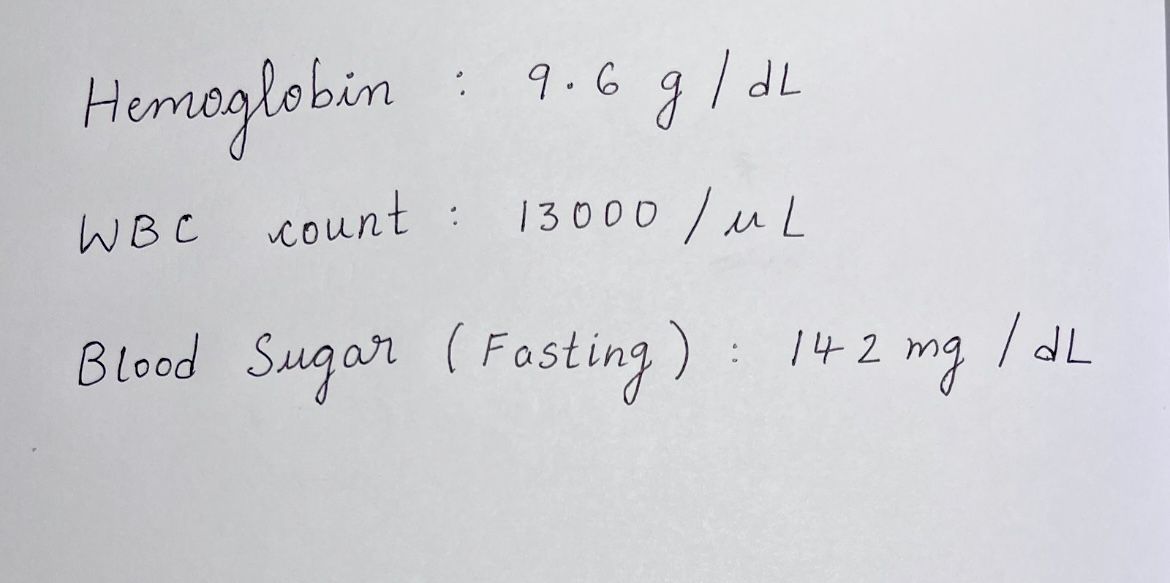 Hemoglobin : 9.6 g / dL
WBC count : 13000 / µL
Blood Sugar (Fasting) : 142 mg / dL